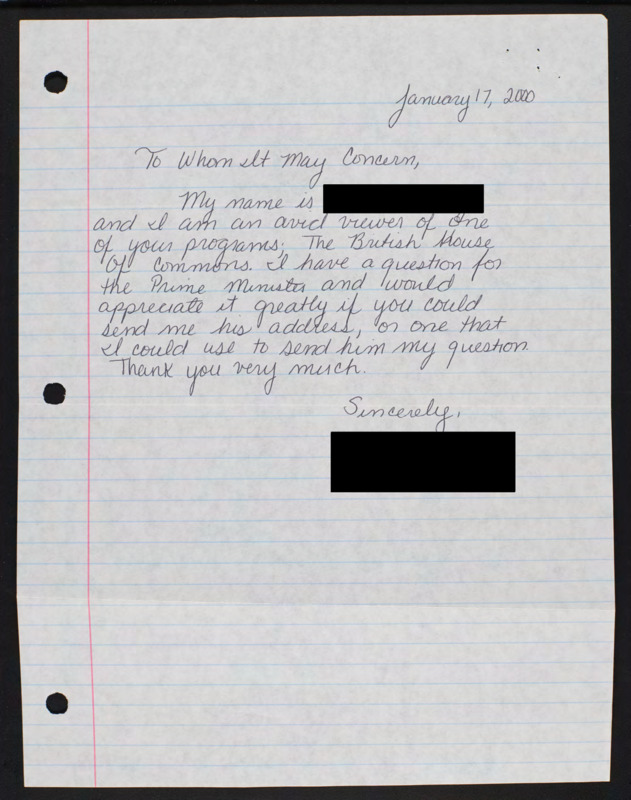 January 17, 2000
To Whom It May Concern,
My name is
and I am an avid viewer of one
of your programs; The British House
Of Commons. I have a question for
the Prime Minister and would
appreciate it greatly if you could
send me his address, or one that
I could use to send him my question.
Thank you very much.
Sincerely,